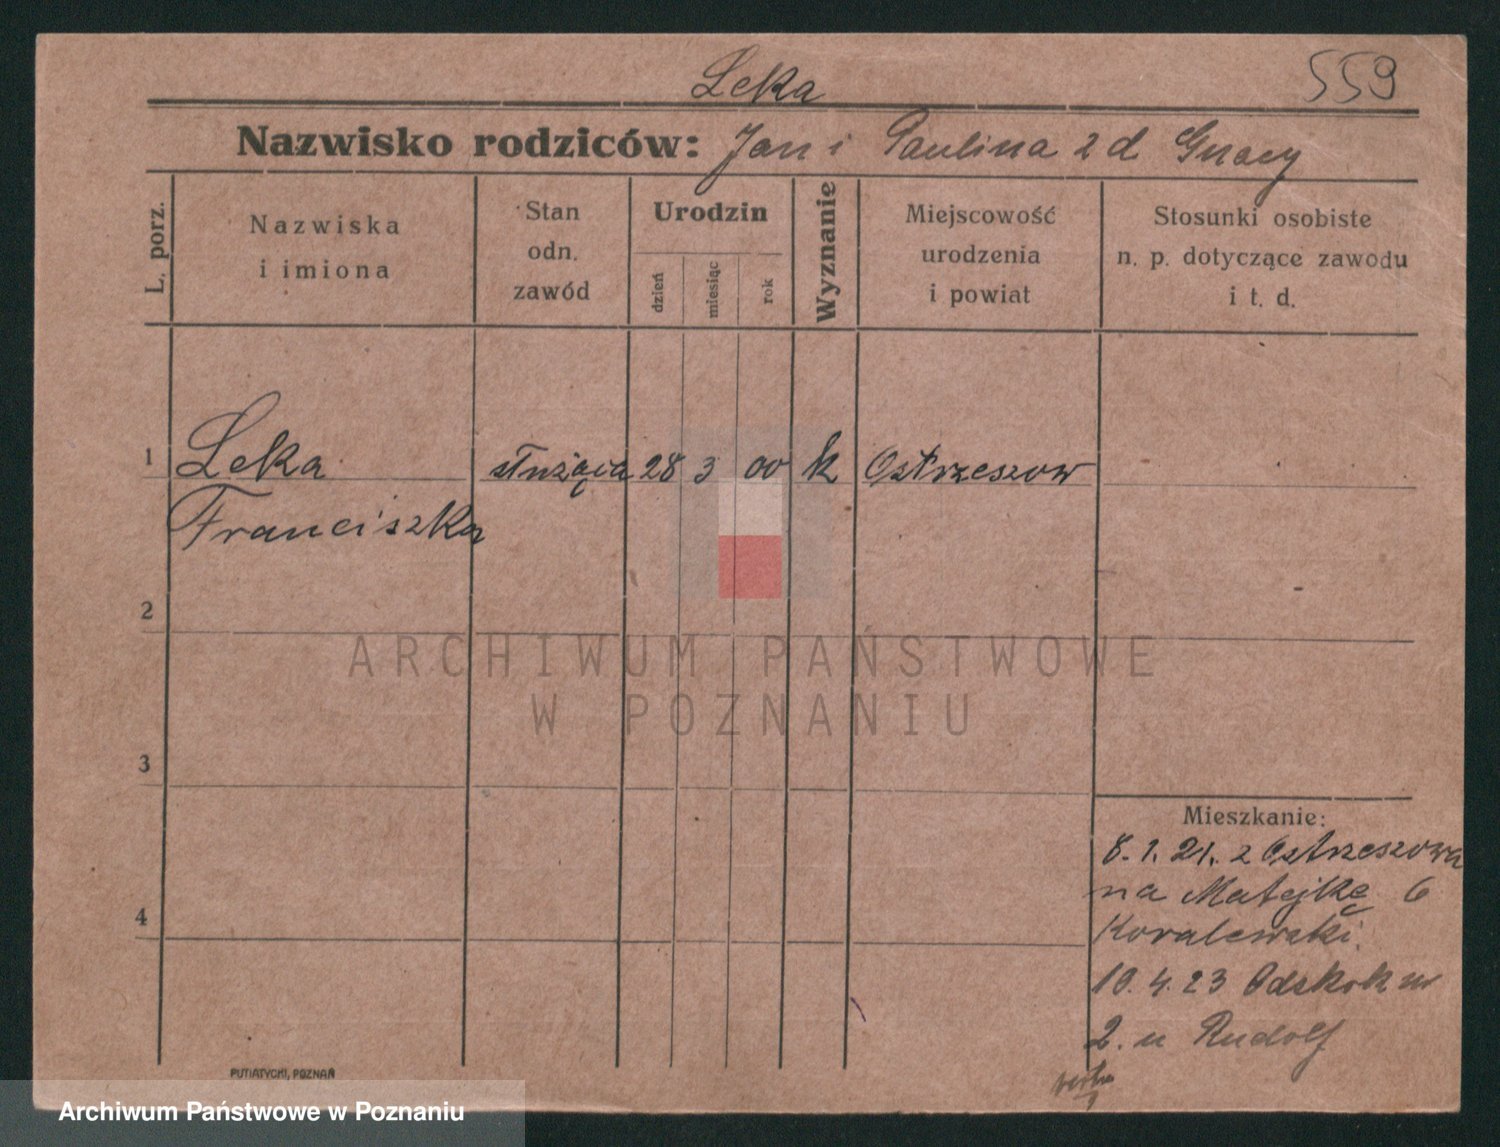 Leka
559
Nazwisko rodziców: Jan i Paulina z d Gnacy
L. porz.
Nazwiska
i imiona
Stan
odn.
zawód
Urodzin
dzień
miesiąc
rok
Wyznanie
Miejscowość
urodzenia
i powiat
Stosunki osobiste
n. p. dotyczące zawodu
i t. d.
1 Leka służąca 28 3 00 k Ostrzeszow
Franciszka
2
3
4
Mieszkanie:
8.1.21. z Ostrzeszowa
na Matejkę 6
Kovalewski.
10.4.23 Odskok nr
2. u Rudolf
PUTIATYCKI, POZNAŃ
ARCHIWUM PAŃSTWOWE
W POZNANIU
Archiwum Państwowe w Poznaniu